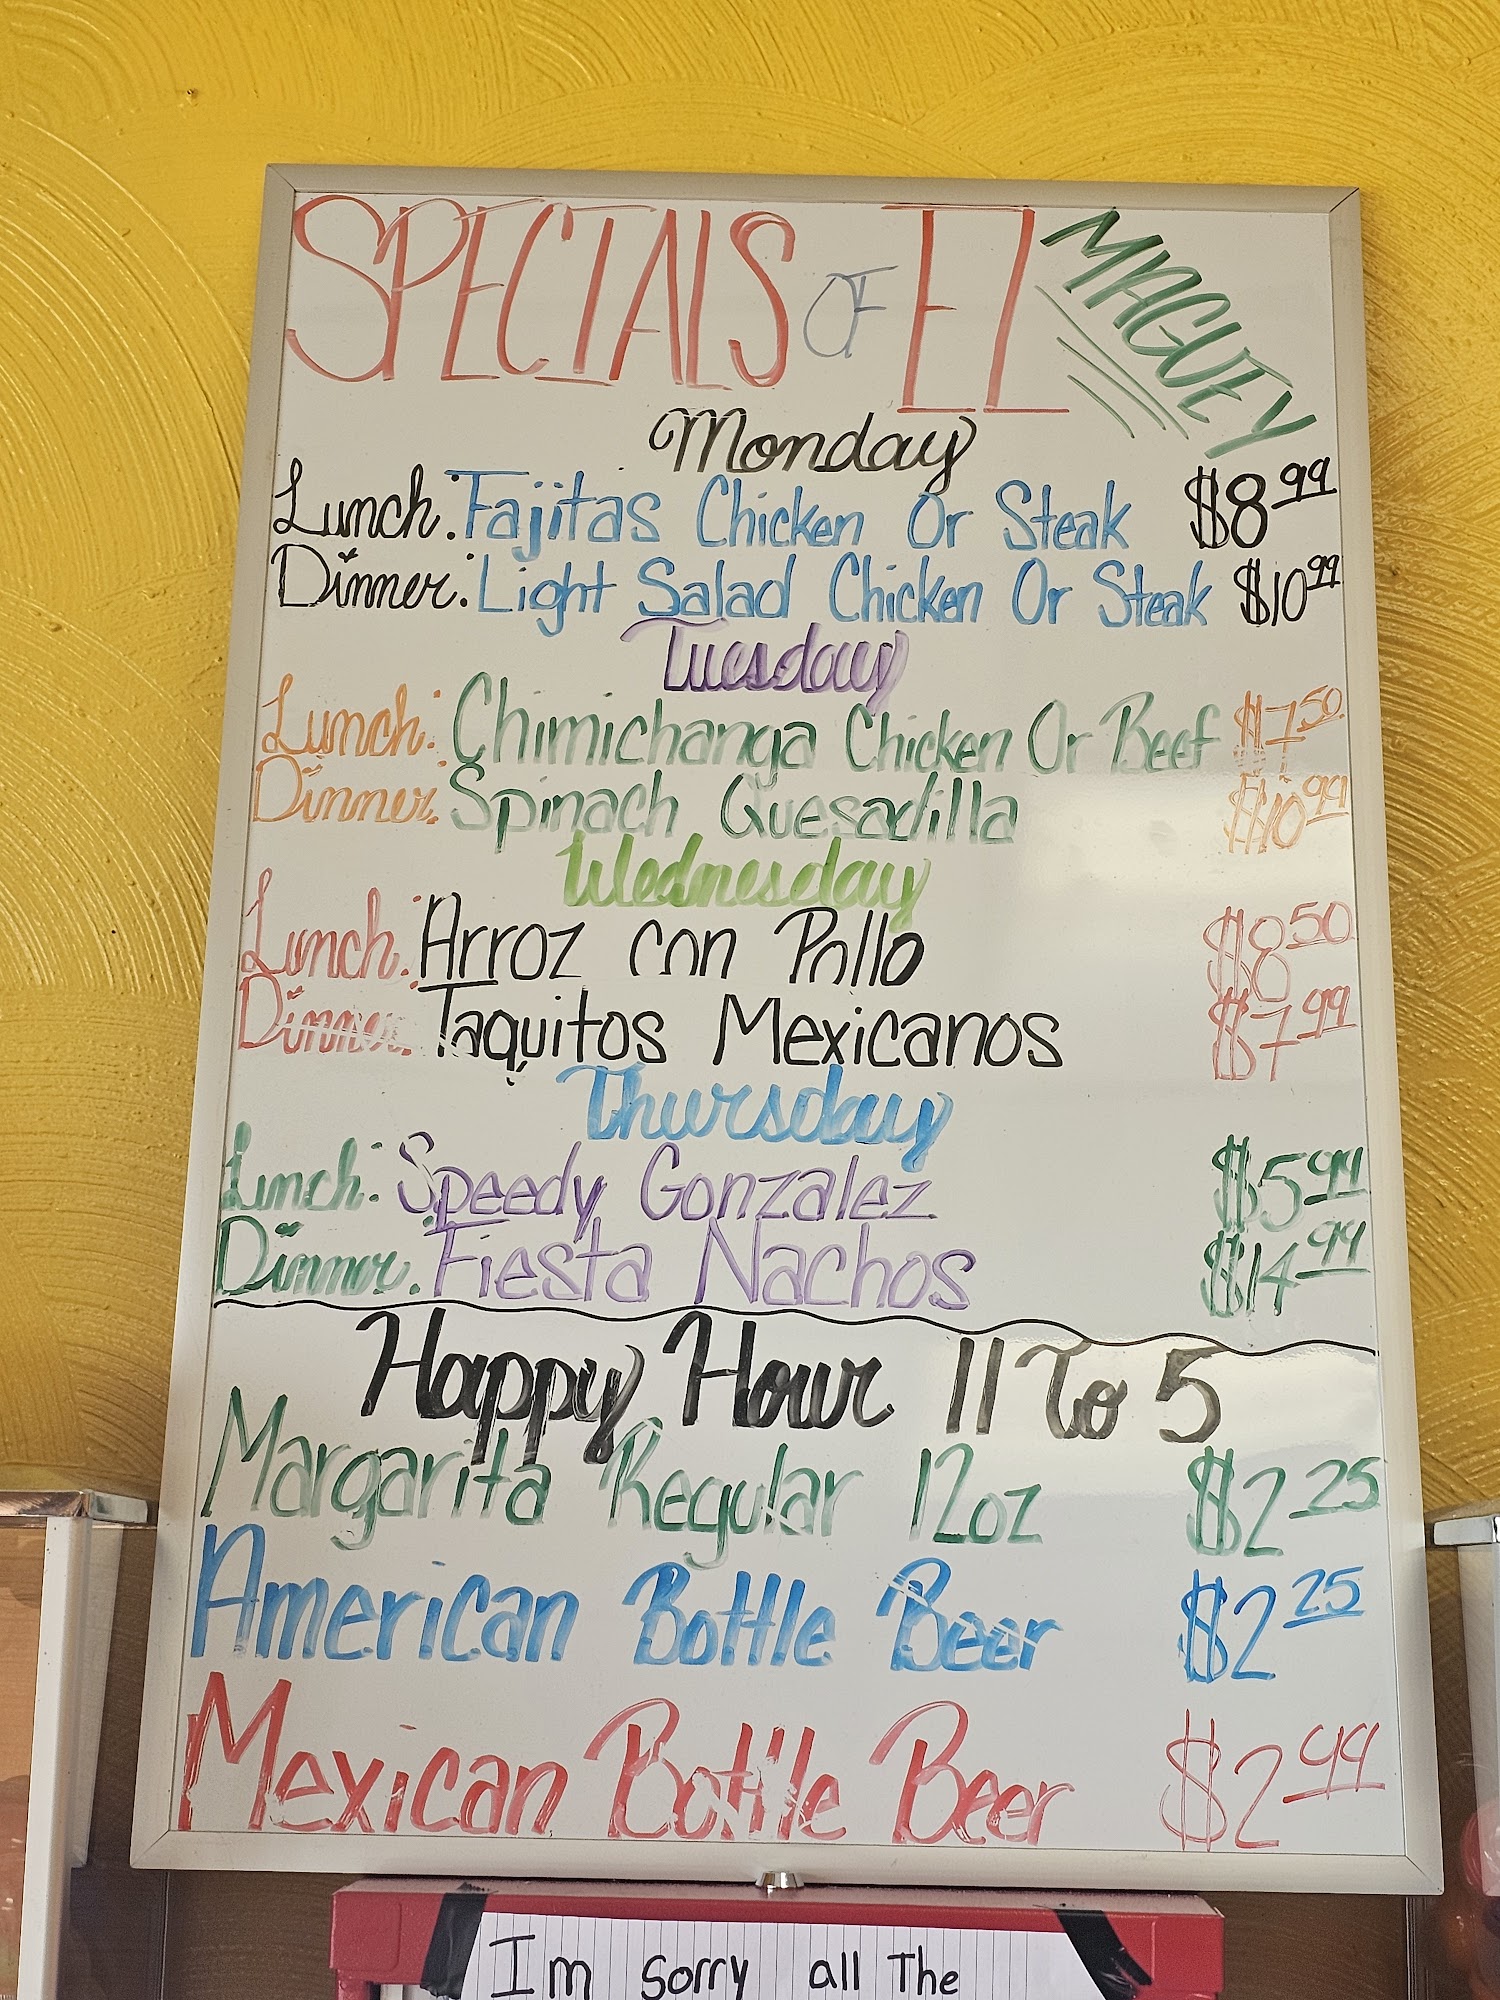 SPECIALS OF EL MAGUEY
Monday
Lunch: Fajitas Chicken Or Steak $8.99
Dinner: Light Salad Chicken Or Steak $10.99
Tuesday
Lunch: Chimichanga Chicken Or Beef $7.50
Dinner: Spinach Quesadilla $10.99
Wednesday
Lunch: Arroz con Pollo $8.50
Dinner: Taquitos Mexicanos $7.99
Thursday
Lunch: Speedy Gonzalez $5.99
Dinner: Fiesta Nachos $14.99
Happy Hour 11 To 5
Margarita Regular 12oz $2.25
American Bottle Beer $2.25
Mexican Bottle Beer $2.99
I'm sorry all The